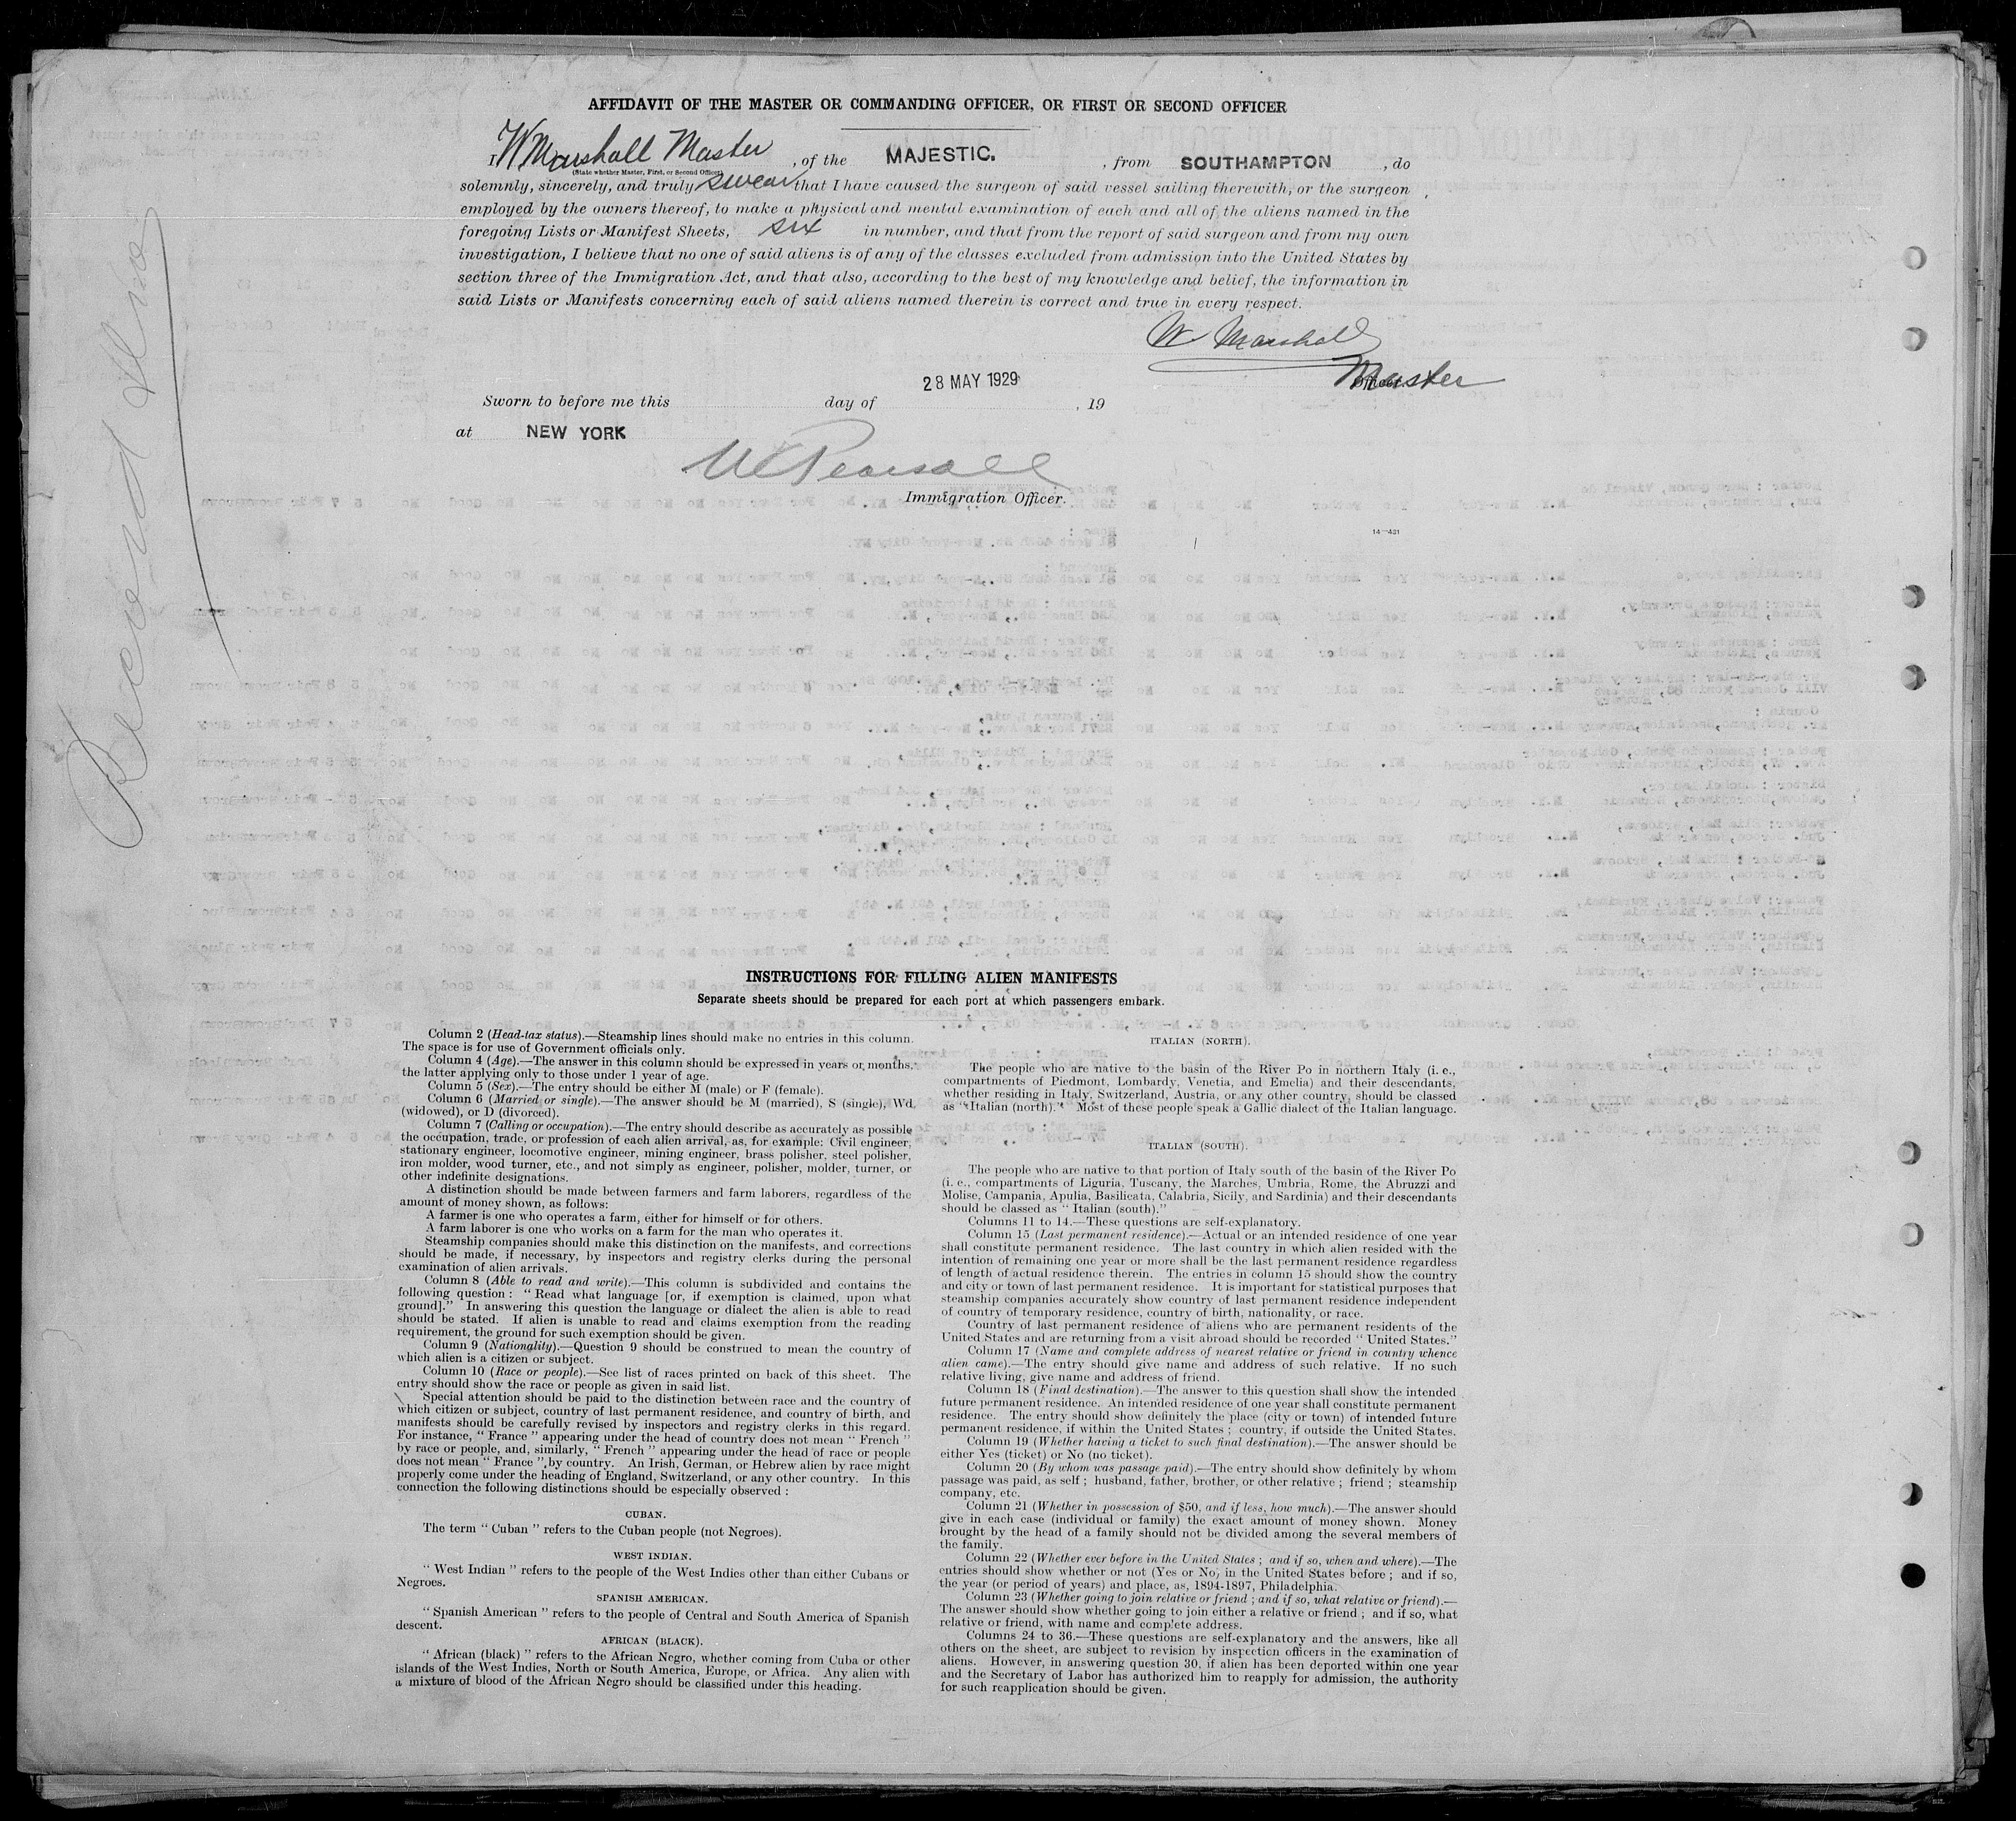 AFFIDAVIT OF THE MASTER OR COMMANDING OFFICER, OR FIRST OR SECOND OFFICER
I W Marshall Master, of the MAJESTIC., from SOUTHAMPTON, do
(State whether Master, First, or Second Officer)
solemnly, sincerely, and truly swear that I have caused the surgeon of said vessel sailing therewith, or the surgeon
employed by the owners thereof, to make a physical and mental examination of each and all of the aliens named in the
foregoing Lists or Manifest Sheets, six in number, and that from the report of said surgeon and from my own
investigation, I believe that no one of said aliens is of any of the classes excluded from admission into the United States by
section three of the Immigration Act, and that also, according to the best of my knowledge and belief, the information in
said Lists or Manifests concerning each of said aliens named therein is correct and true in every respect.
W Marshall
Master
Officer.
28 MAY 1929
Sworn to before me this day of , 19
at NEW YORK
Pearsall
Immigration Officer.
14—421
Record
INSTRUCTIONS FOR FILLING ALIEN MANIFESTS
Separate sheets should be prepared for each port at which passengers embark.
Column 2 (Head-tax status).—Steamship lines should make no entries in this column.
The space is for use of Government officials only.
Column 4 (Age).—The answer in this column should be expressed in years or months,
the latter applying only to those under 1 year of age.
Column 5 (Sex).—The entry should be either M (male) or F (female).
Column 6 (Married or single).—The answer should be M (married), S (single), Wd
(widowed), or D (divorced).
Column 7 (Calling or occupation).—The entry should describe as accurately as possible
the occupation, trade, or profession of each alien arrival, as, for example: Civil engineer,
stationary engineer, locomotive engineer, mining engineer, brass polisher, steel polisher,
iron molder, wood turner, etc., and not simply as engineer, polisher, molder, turner, or
other indefinite designations.
A distinction should be made between farmers and farm laborers, regardless of the
amount of money shown, as follows:
A farmer is one who operates a farm, either for himself or for others.
A farm laborer is one who works on a farm for the man who operates it.
Steamship companies should make this distinction on the manifests, and corrections
should be made, if necessary, by inspectors and registry clerks during the personal
examination of alien arrivals.
Column 8 (Able to read and write).—This column is subdivided and contains the
following question: "Read what language [or, if exemption is claimed, upon what
ground]." In answering this question the language or dialect the alien is able to read
should be stated. If alien is unable to read and claims exemption from the reading
requirement, the ground for such exemption should be given.
Column 9 (Nationality).—Question 9 should be construed to mean the country of
which alien is a citizen or subject.
Column 10 (Race or people).—See list of races printed on back of this sheet. The
entry should show the race or people as given in said list.
Special attention should be paid to the distinction between race and the country of
which citizen or subject, country of last permanent residence, and country of birth, and
manifests should be carefully revised by inspectors and registry clerks in this regard.
For instance, "France" appearing under the head of country does not mean "French"
by race or people, and, similarly, "French" appearing under the head of race or people
does not mean "France" by country. An Irish, German, or Hebrew alien by race might
properly come under the heading of England, Switzerland, or any other country. In this
connection the following distinctions should be especially observed:
CUBAN.
The term "Cuban" refers to the Cuban people (not Negroes).
WEST INDIAN.
"West Indian" refers to the people of the West Indies other than either Cubans or
Negroes.
SPANISH AMERICAN.
"Spanish American" refers to the people of Central and South America of Spanish
descent.
AFRICAN (BLACK).
"African (black)" refers to the African Negro, whether coming from Cuba or other
islands of the West Indies, North or South America, Europe, or Africa. Any alien with
a mixture of blood of the African Negro should be classified under this heading.
ITALIAN (NORTH).
The people who are native to the basin of the River Po in northern Italy (i. e.,
compartments of Piedmont, Lombardy, Venetia, and Emelia) and their descendants,
whether residing in Italy, Switzerland, Austria, or any other country, should be classed
as "Italian (north)." Most of these people speak a Gallic dialect of the Italian language.
ITALIAN (SOUTH).
The people who are native to that portion of Italy south of the basin of the River Po
(i. e., compartments of Liguria, Tuscany, the Marches, Umbria, Rome, the Abruzzi and
Molise, Campania, Apulia, Basilicata, Calabria, Sicily, and Sardinia) and their descendants
should be classed as "Italian (south)."
Columns 11 to 14.—These questions are self-explanatory.
Column 15 (Last permanent residence).—Actual or an intended residence of one year
shall constitute permanent residence. The last country in which alien resided with the
intention of remaining one year or more shall be the last permanent residence regardless
of length of actual residence therein. The entries in column 15 should show the country
and city or town of last permanent residence. It is important for statistical purposes that
steamship companies accurately show country of last permanent residence independent
of country of temporary residence, country of birth, nationality, or race.
Country of last permanent residence of aliens who are permanent residents of the
United States and are returning from a visit abroad should be recorded "United States."
Column 17 (Name and complete address of nearest relative or friend in country whence
alien came).—The entry should give name and address of such relative. If no such
relative living, give name and address of friend.
Column 18 (Final destination).—The answer to this question shall show the intended
future permanent residence. An intended residence of one year shall constitute permanent
residence. The entry should show definitely the place (city or town) of intended future
permanent residence, if within the United States; country, if outside the United States.
Column 19 (Whether having a ticket to such final destination).—The answer should be
either Yes (ticket) or No (no ticket).
Column 20 (By whom was passage paid).—The entry should show definitely by whom
passage was paid, as self; husband, father, brother, or other relative; friend; steamship
company, etc.
Column 21 (Whether in possession of $50, and if less, how much).—The answer should
give in each case (individual or family) the exact amount of money shown. Money
brought by the head of a family should not be divided among the several members of
the family.
Column 22 (Whether ever before in the United States; and if so, when and where).—The
entries should show whether or not (Yes or No) in the United States before; and if so,
the year (or period of years) and place, as, 1894-1897, Philadelphia.
Column 23 (Whether going to join relative or friend; and if so, what relative or friend).—
The answer should show whether going to join either a relative or friend; and if so, what
relative or friend, with name and complete address.
Columns 24 to 36.—These questions are self-explanatory and the answers, like all
others on the sheet, are subject to revision by inspection officers in the examination of
aliens. However, in answering question 30, if alien has been deported within one year
and the Secretary of Labor has authorized him to reapply for admission, the authority
for such reapplication should be given.